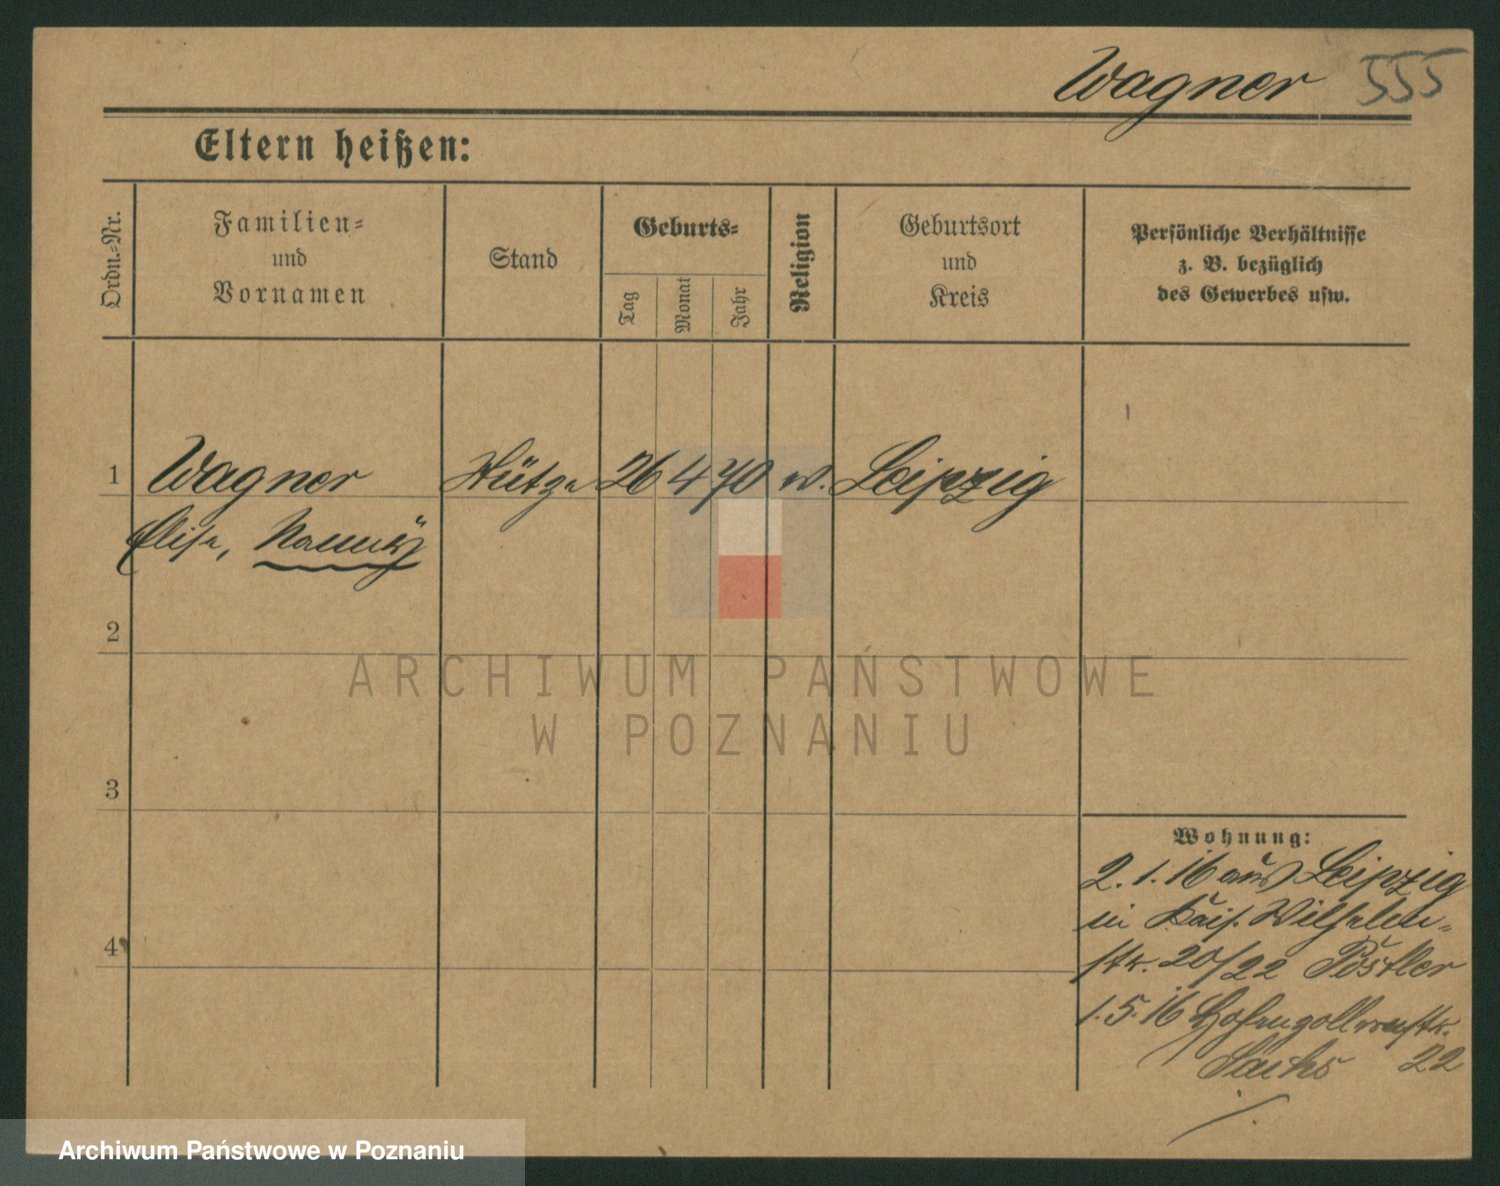 Wagner 555
Eltern heißen:
Ordn.-Nr.
Familien-
und
Vornamen
Stand
Geburts-
Tag
Monat
Jahr
Religion
Geburtsort
und
Kreis
Persönliche Verhältnisse
z. B. bezüglich
des Gewerbes usw.
1 Wagner Stütze 26 4 70 Leipzig
Elise,
2
3
4
ARCHIWUM PAŃSTWOWE
W POZNANIU
Wohnung:
2.1.16 aus Leipzig
in Kais. Wilhelm-
str. 20/22
1.5.16 Hohenzollernstr.
Sachs 22
Archiwum Państwowe w Poznaniu